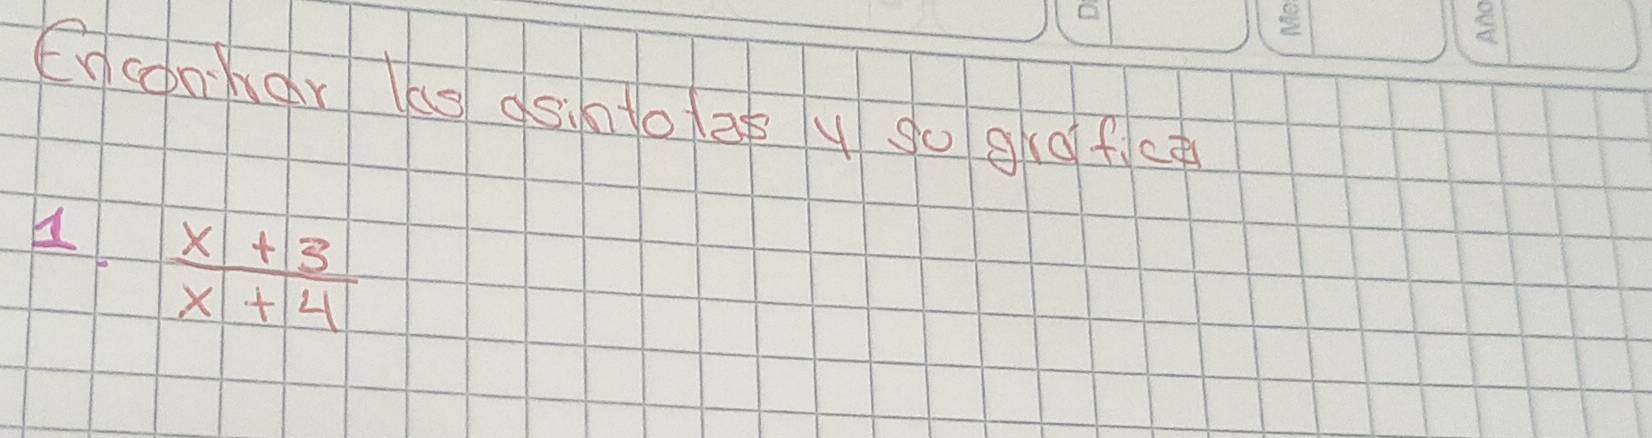 Encontrar las asintotas y su grafica
1. x + 3
x + 4
Año